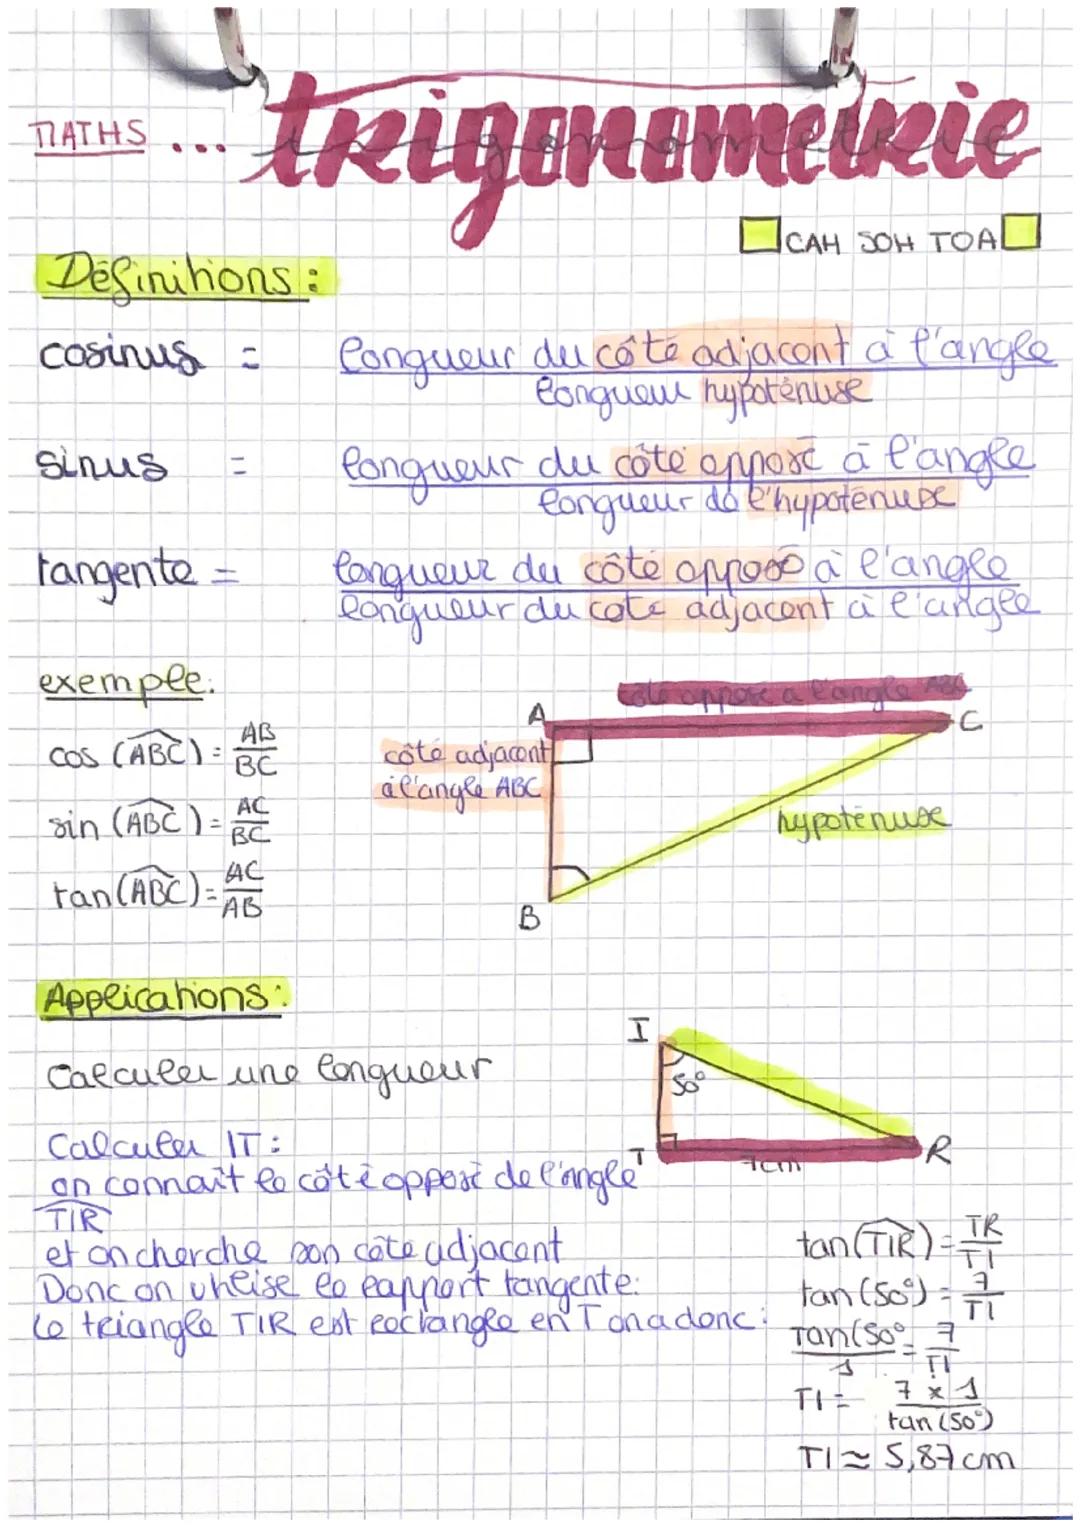 MATHS ... trigonométrie
CAH SOH TOA
Définitions :
cosinus = longueur du côté adjacent à l'angle
longueur hypoténuse
sinus = longueur du côté opposé à l'angle
longueur de l'hypoténuse
tangente = longueur du côté opposé à l'angle
longueur du côté adjacent à l'angle
exemple:
côté opposé à l'angle ABC
A
C
cos (ABC) = AB
BC
côté adjacent
à l'angle ABC
sin (ABC) = AC
BC
hypoténuse
tan (ABC) = AC
AB
B
Applications :
I
Calculer une longueur
50°
Calculer IT :
T
R
7cm
on connaît le côté opposé de l'angle
TIR
et on cherche son côté adjacent
Donc on utilise le rapport tangente.
Le triangle TIR est rectangle en T on a donc :
tan (TIR) = TR
TI
tan (50°) = 7
TI
Tan(50° = 7
1 TI
TI = 7 x 1
tan (50°)
TI ≈ 5,87 cm